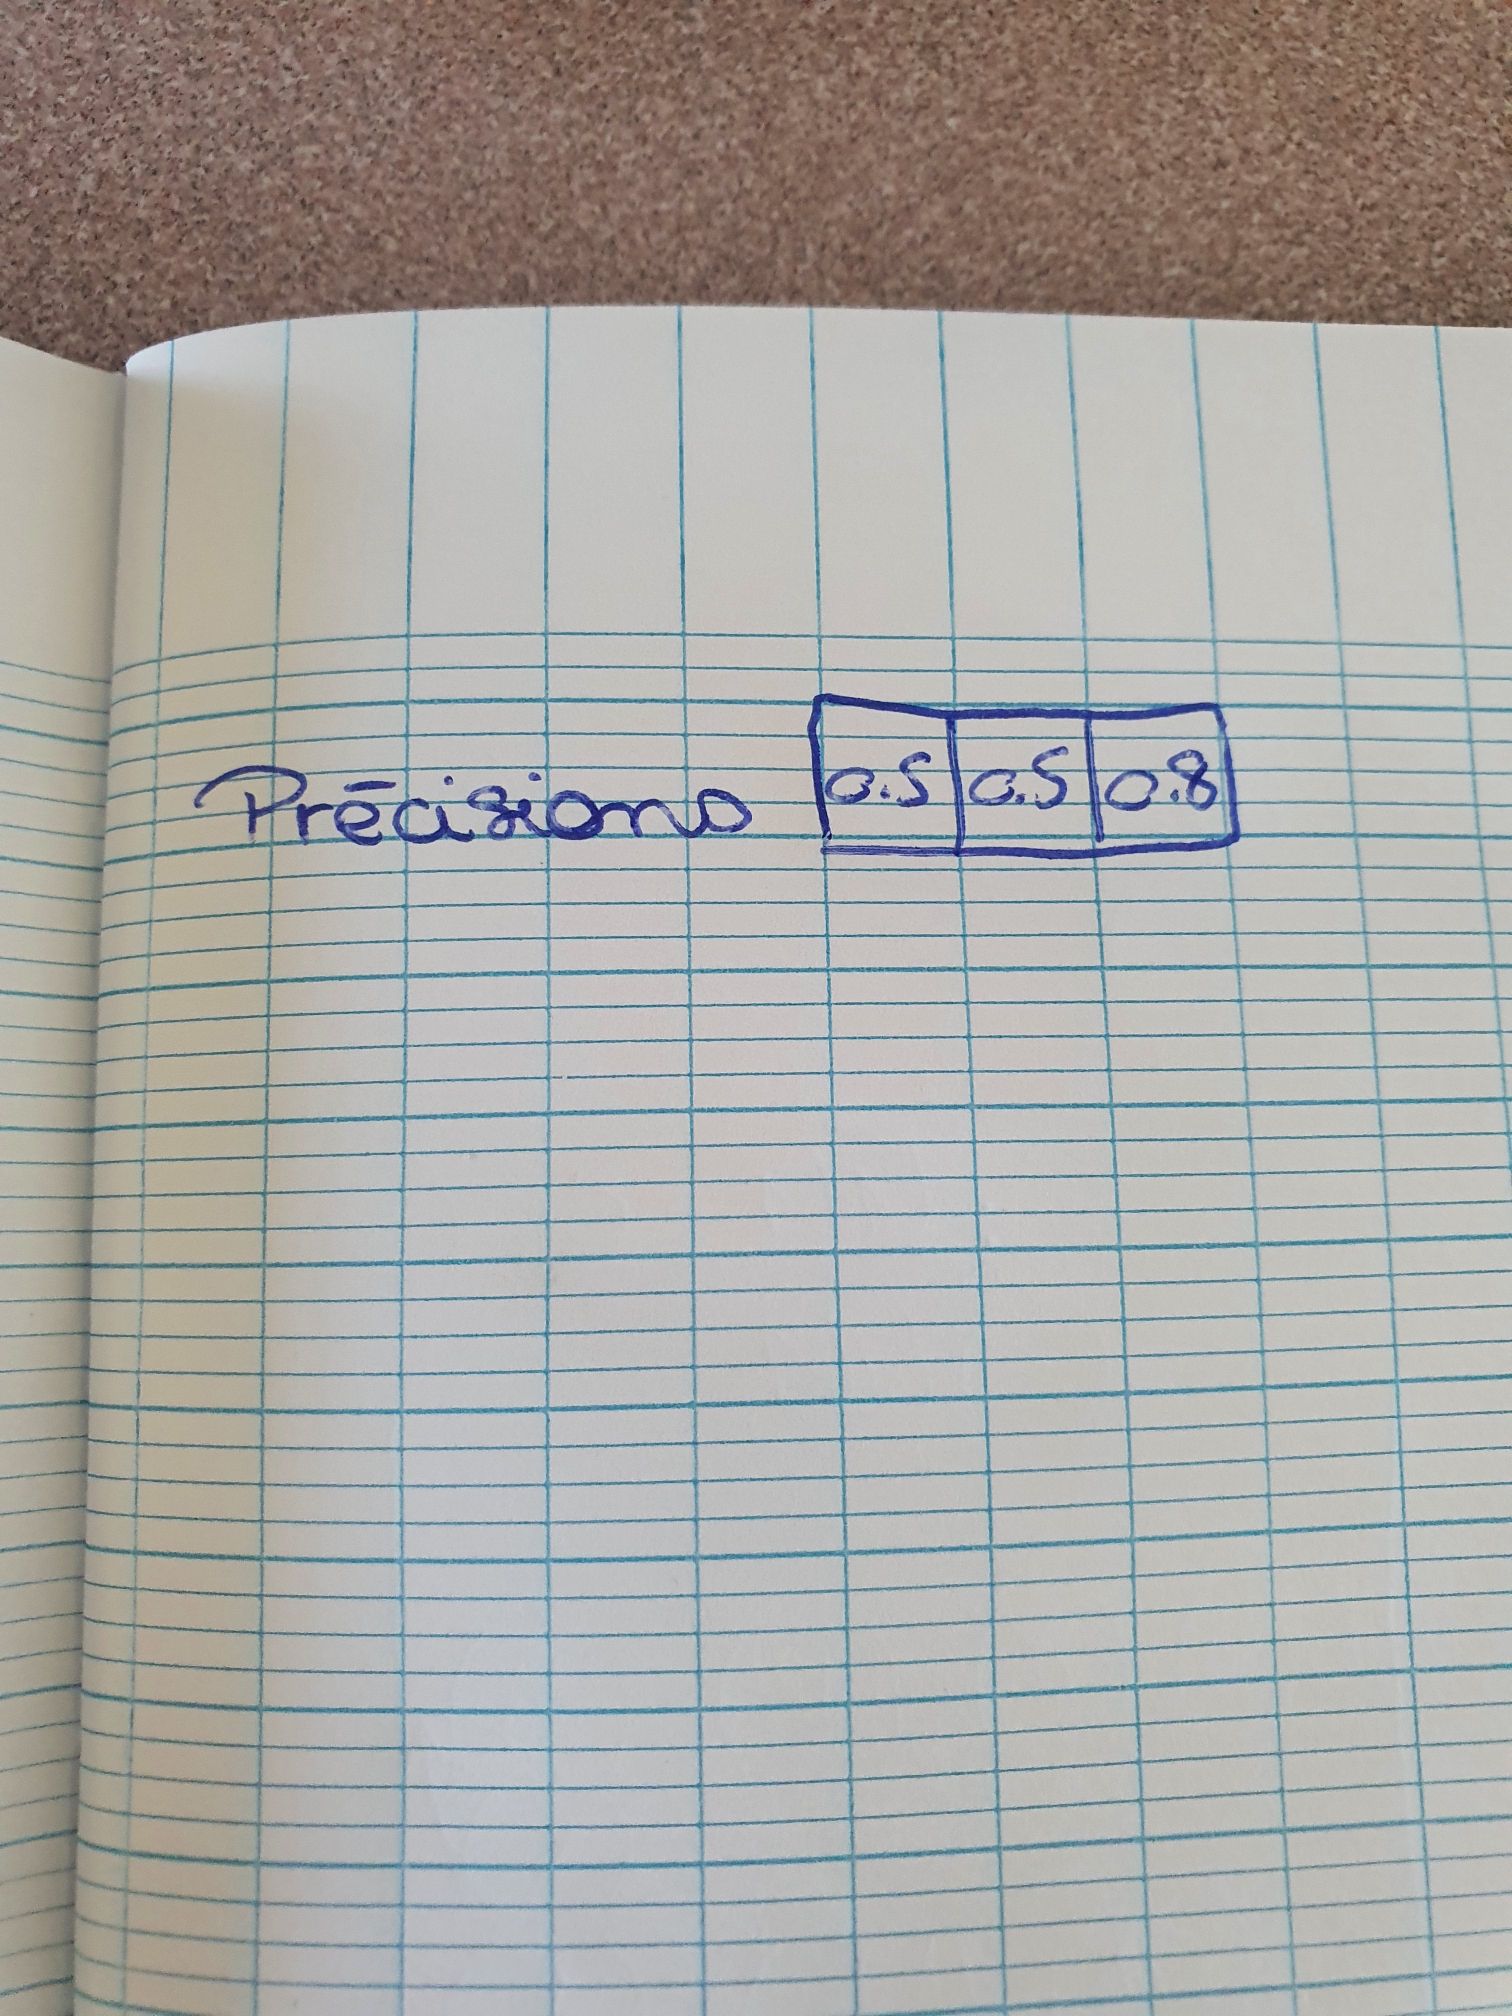 Précisions 0.5 0.5 0.8